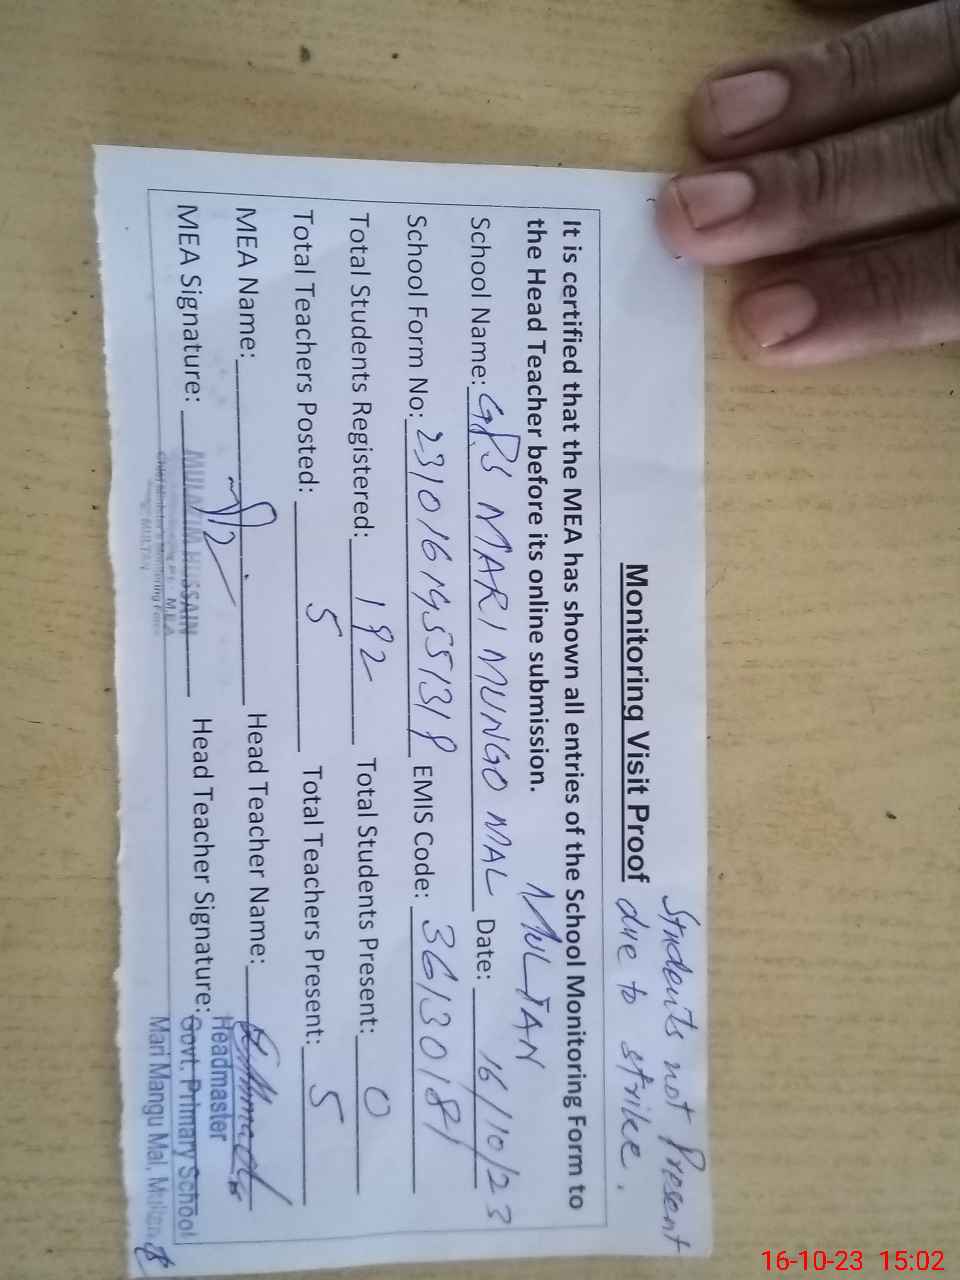 Students not Present
Monitoring Visit Proof due to strike.
It is certified that the MEA has shown all entries of the School Monitoring Form to
the Head Teacher before its online submission. MULTAN
School Name: GPS MARI MUNGO MAL Date: 16/10/23
School Form No: EMIS Code: 36130181
Total Students Registered: 192 Total Students Present: 0
Total Teachers Posted: 5 Total Teachers Present: 5
MEA Name: Head Teacher Name:
MEA Signature: HUSSAIN Head Teacher Signature:
M.E.A
MULTAN
Headmaster
Govt. Primary School
Mari Mangu Mal, Multan
16-10-23 15:02